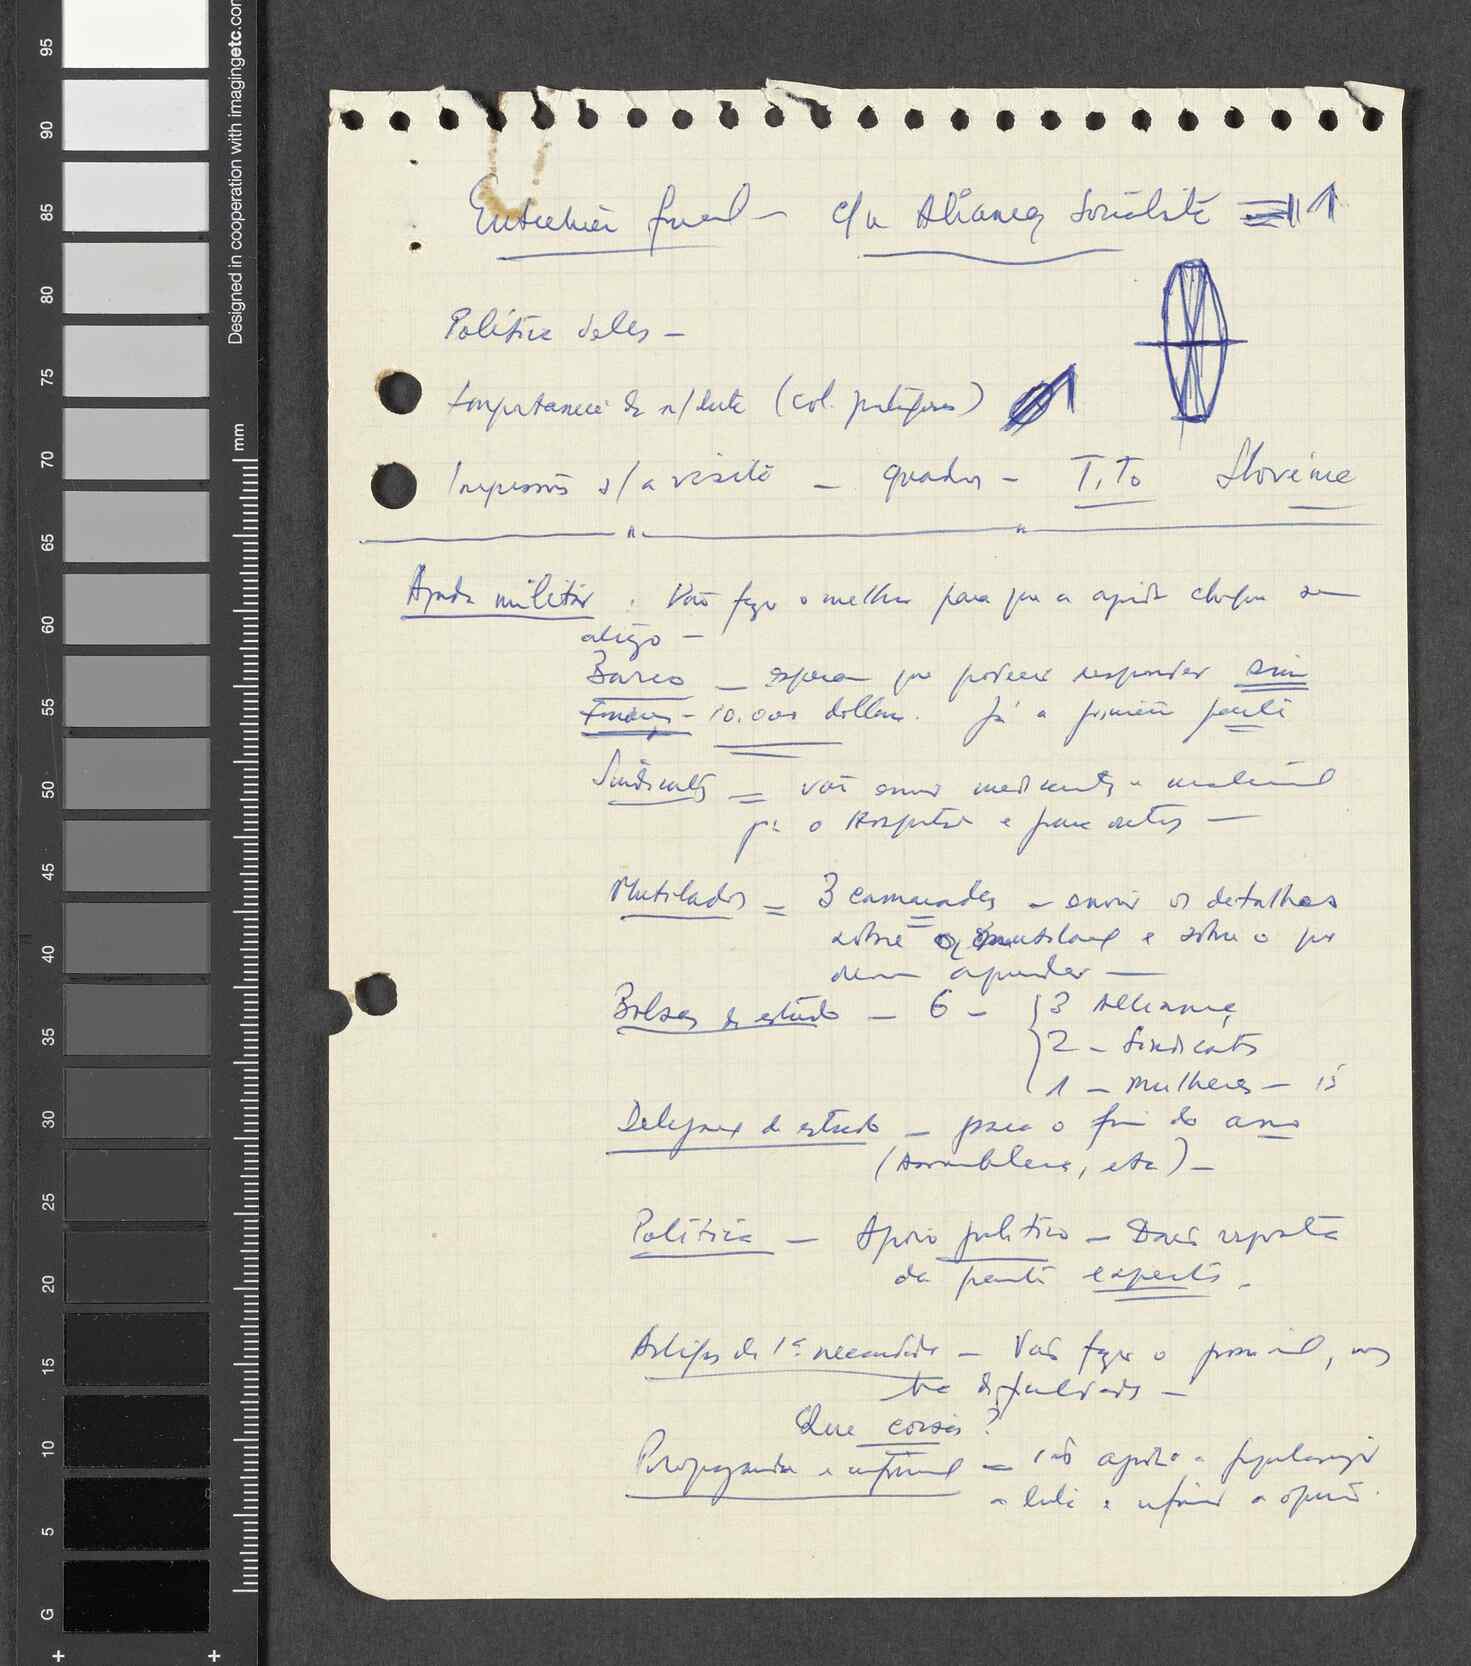 95
90
85
80
75
70
65
60
55
50
45
40
35
30
25
20
15
10
5
G
mm
Designed in cooperation with imagingetc.com
final - c/a Aliança Socialista
Política deles -
Importancia da n/luta (col. portuguesas)
Impressões s/ a visita - quadros - Tito Slovénie
Ajuda militar : Vão fazer o melhor para que a ajuda chegue
Barco - esperam que poderão responder sim
Finanças - 10.000 dollars. Já a primeira parte
Sindicatos = vão enviar medicamentos e material
pª o Hospital e para
Mutilados = 3 camaradas - enviar os detalhes
sobre e sobre o que
devem aprender -
Bolsas de estudo - 6 - 3 Alliança
2 - Sindicatos
1 - Mulheres -
Delegações de estudo - para o fim do ano
(Assembleia, etc) -
Política - Apoio político - Darão resposta
da
Artigos de 1ª necessidade - Vão fazer o possível, mas
há dificuldades -
Que coisas?
Propaganda e - vão ajudar a popularizar
a luta e informar a opinião.